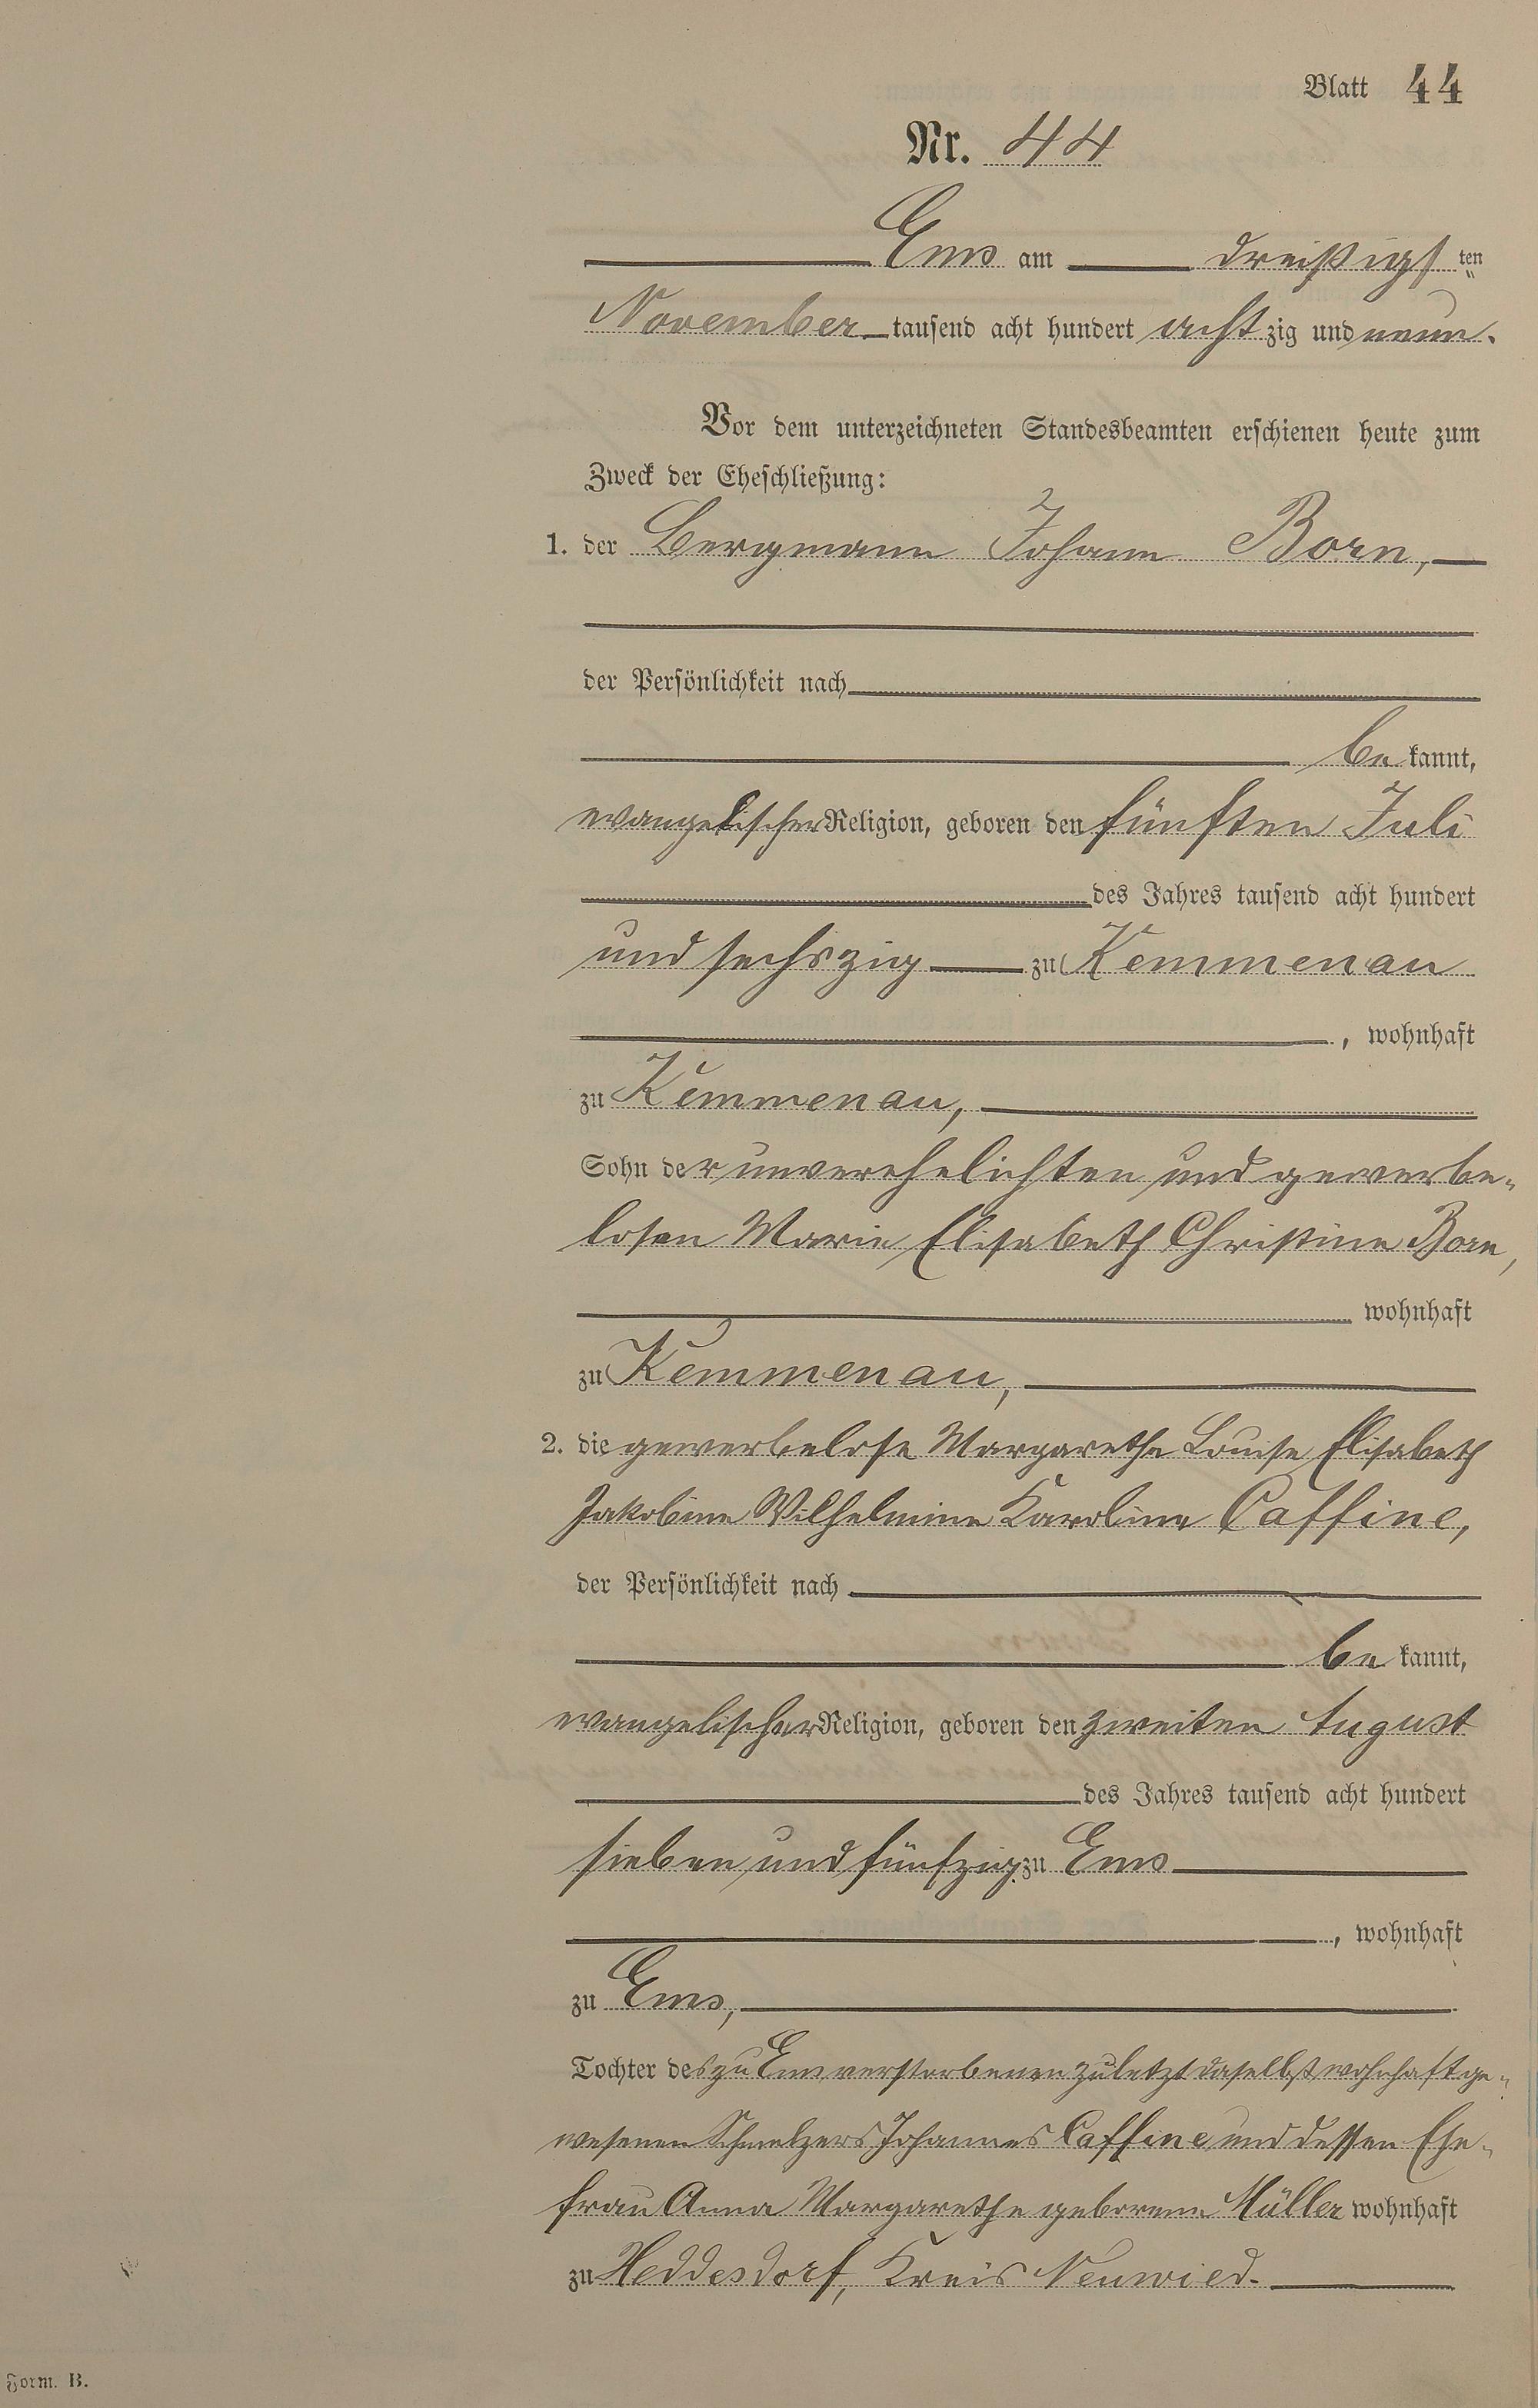 Blatt 44
Nr. 44
Ems am dreißigsten
November tausend acht hundert achtzig und neun.
Vor dem unterzeichneten Standesbeamten erschienen heute zum
Zweck der Eheschließung:
1. der Bergmann Johann Born,
der Persönlichkeit nach
bekannt,
evangelischer Religion, geboren den fünften Juli
des Jahres tausend acht hundert
und sechszig zu Kemmenau
, wohnhaft
zu Kemmenau,
Sohn der unverehelichten und gewerbe-
losen Marie Elisabeth Christine Born,
wohnhaft
zu Kemmenau,
2. die gewerbelose Margarethe Louise Elisabeth
Jakobine Wilhelmine Karoline Caffine,
der Persönlichkeit nach
bekannt,
evangelischer Religion, geboren den zweiten August
des Jahres tausend acht hundert
sieben und fünfzig zu Ems
, wohnhaft
zu Ems,
Tochter des zu Ems verstorbenen zuletzt daselbst wohnhaft ge-
wesenen Schmelzers Johannes Caffine und dessen Ehe-
frau Anna Margarethe geborene Müller wohnhaft
zu Heddesdorf, Kreis Neuwied.
Form. B.